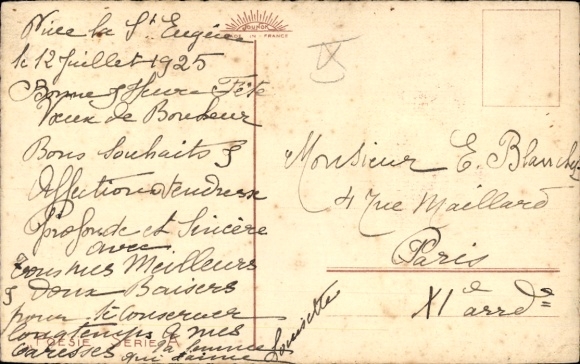 Vive la St Eugène
le 12 Juillet 1925
Bonne & Heure Fête
Vœux de Bonheur
Bons Souhaits &
Affection tendresse
profonde et Sincère
avec
tous mes Meilleurs
& doux Baisers
pour te conserver
longtemps à mes
caresses ta femme
qui t'aime Louisette
NOUNOK
MADE IN FRANCE
Monsieur E. Blanche
4 rue Maillard
Paris
XI e arrd e
POESIE SERIE A